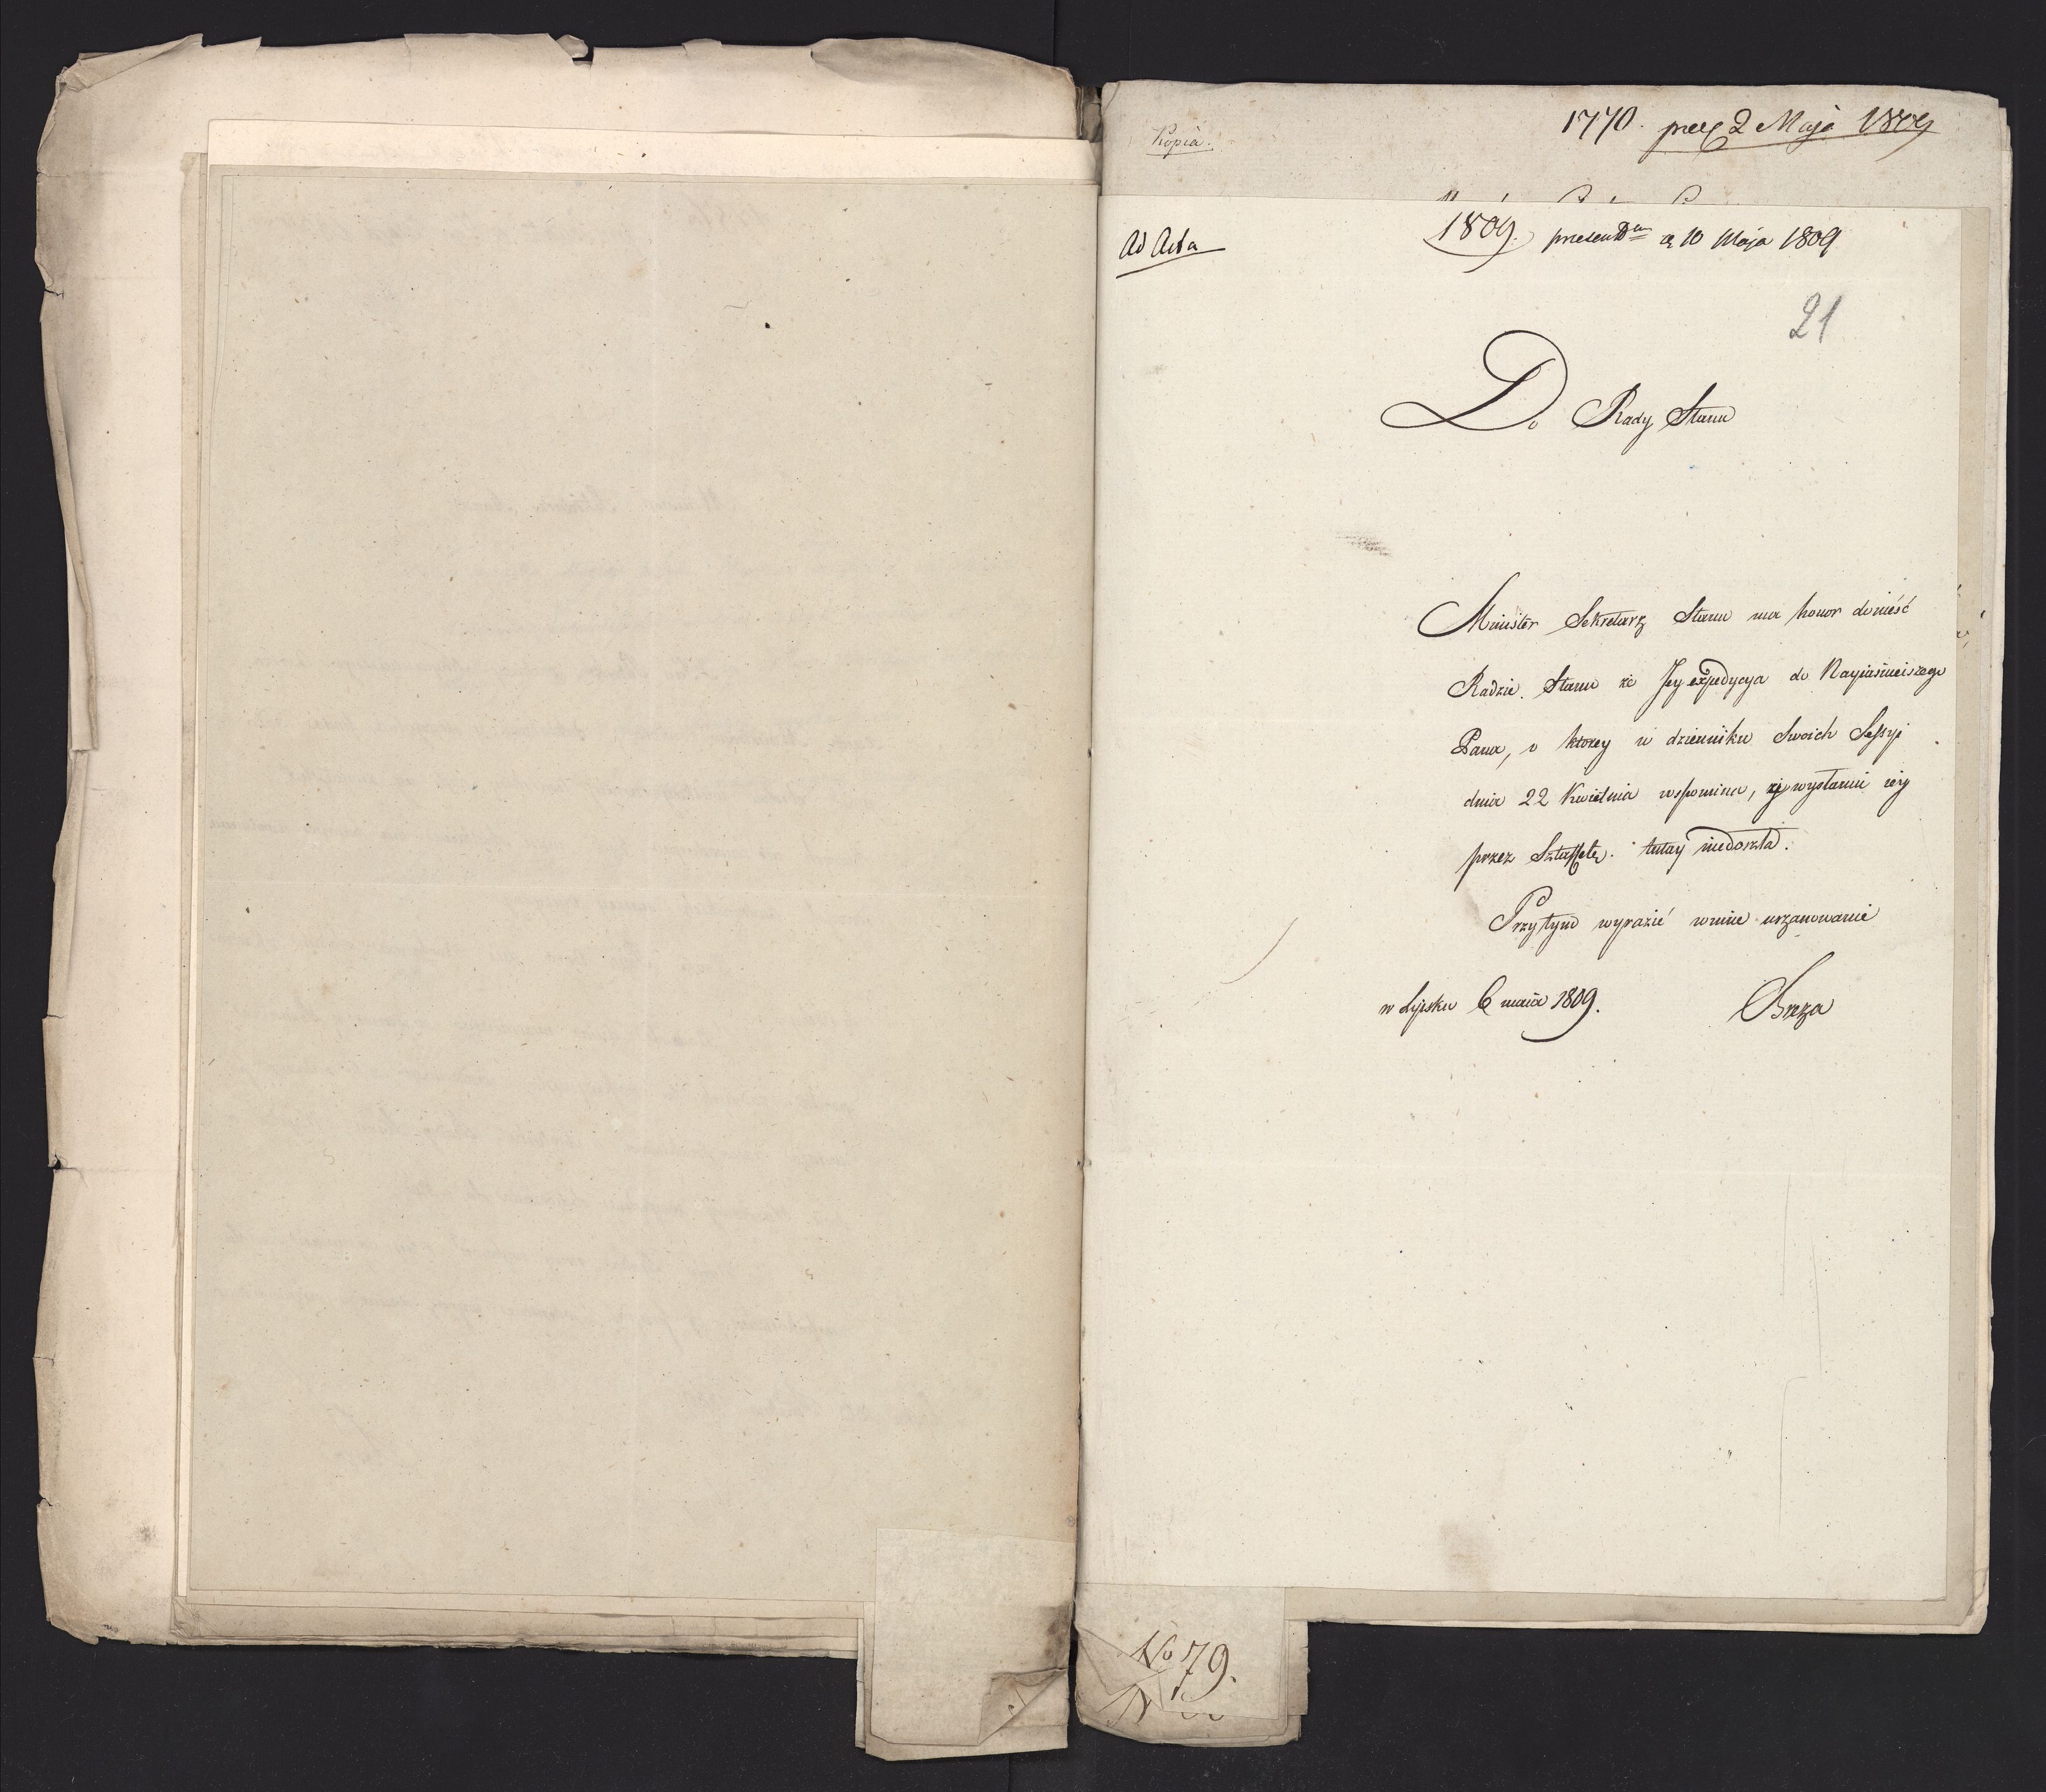 Kopia.
1770. prez 2 Maja 1809
Ad Acta
1809. presentm d 10 Maja 1809
21
Do Rady Stanu
Minister Sekretarz Stanu ma honor donieść
Radzie Stanu że Jey expedycya do Nayiaśnieiszego
Pana, o ktorey w dzienniku Swoich Sessyi
dnia 22 Kwietnia wspomina, wysłanie iey
przez Sztaffetę. tutay niedoszła.
Przytym wyrazić winne uszanowanie
w Lipsku 6 maia 1809. Breza
No 79.